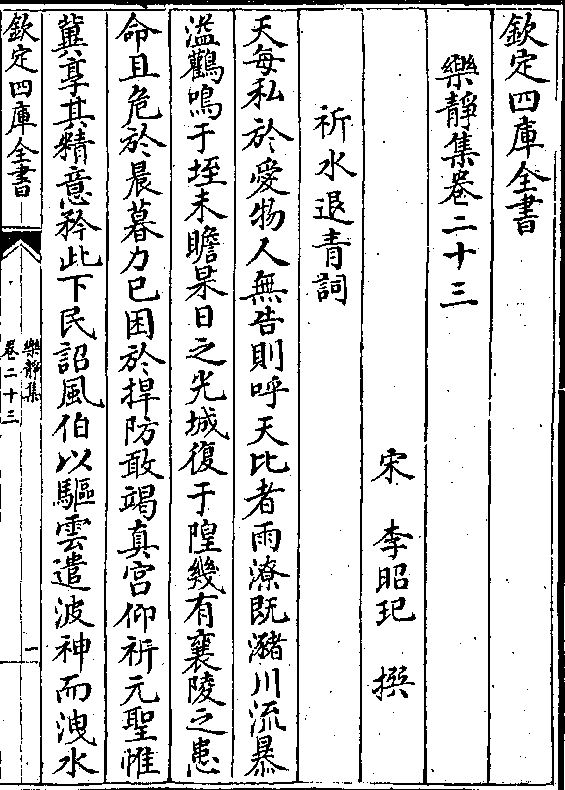 欽定四庫全書
樂靜集卷二十三
宋 李昭玘 撰
祈水退青詞
天每私於愛物人無告則呼天比者雨潦既瀦川流暴
溢鸛鳴于垤未瞻杲日之光城復于隍幾有襄陵之患
命且危於晨暮力已困於捍防敢竭真宫仰祈元聖惟
冀享其精意矜此下民詔風伯以驅雲遣波神而洩水
欽定四庫全書
樂靜集
卷二十三
一